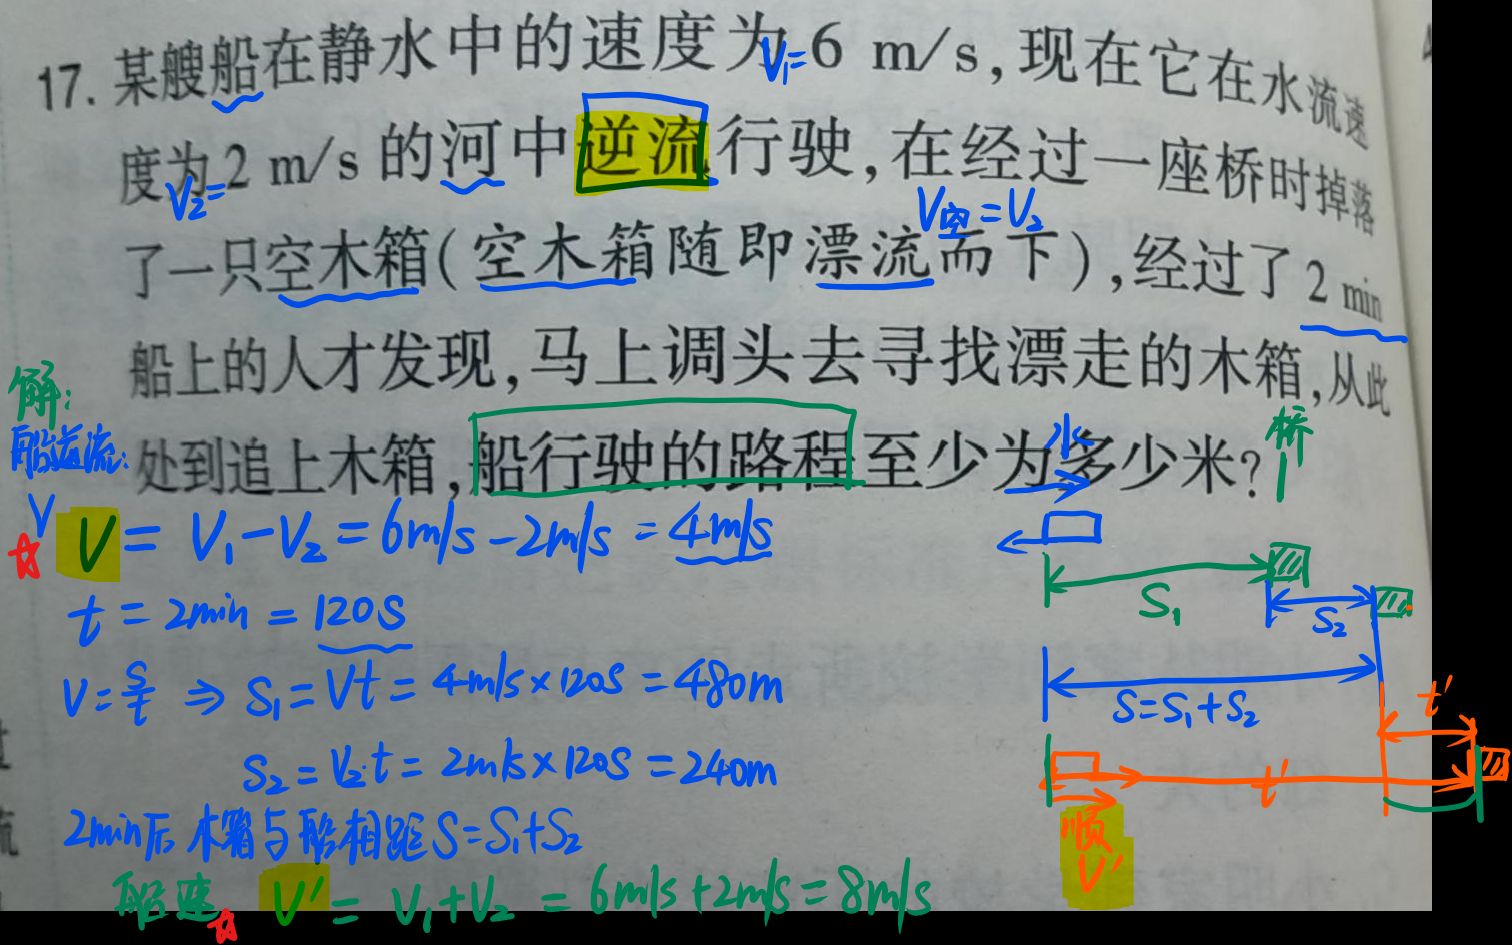 17. 某艘船在静水中的速度为 6 m/s，现在它在水流速
V₁=
度为 2 m/s 的河中逆流行驶，在经过一座桥时掉落
V₂=
V空=V₂
了一只空木箱(空木箱随即漂流而下)，经过了 2 min
船上的人才发现，马上调头去寻找漂走的木箱，从此
处到追上木箱，船行驶的路程至少为多少米?
解:
船逆流:
V
V = V₁-V₂ = 6m/s-2m/s = 4m/s
t = 2min = 120s
V=s/t ⇒ S₁=Vt=4m/s×120s=480m
S₂=V₂·t=2m/s×120s=240m
2min后 木箱与船相距S=S₁+S₂
船速 V'= V₁+V₂ = 6m/s+2m/s=8m/s
水
桥
S₁
S₂
S=S₁+S₂
t'
t'
顺
V'